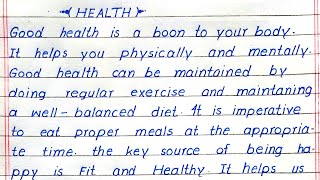 HEALTH
Good health is a boon to your body.
It helps you physically and mentally.
Good health can be maintained by
doing regular exercise and maintaning
a well-balanced diet. It is imperative
to eat proper meals at the appropria-
te time. the key source of being ha-
ppy is Fit and Healthy. It helps us